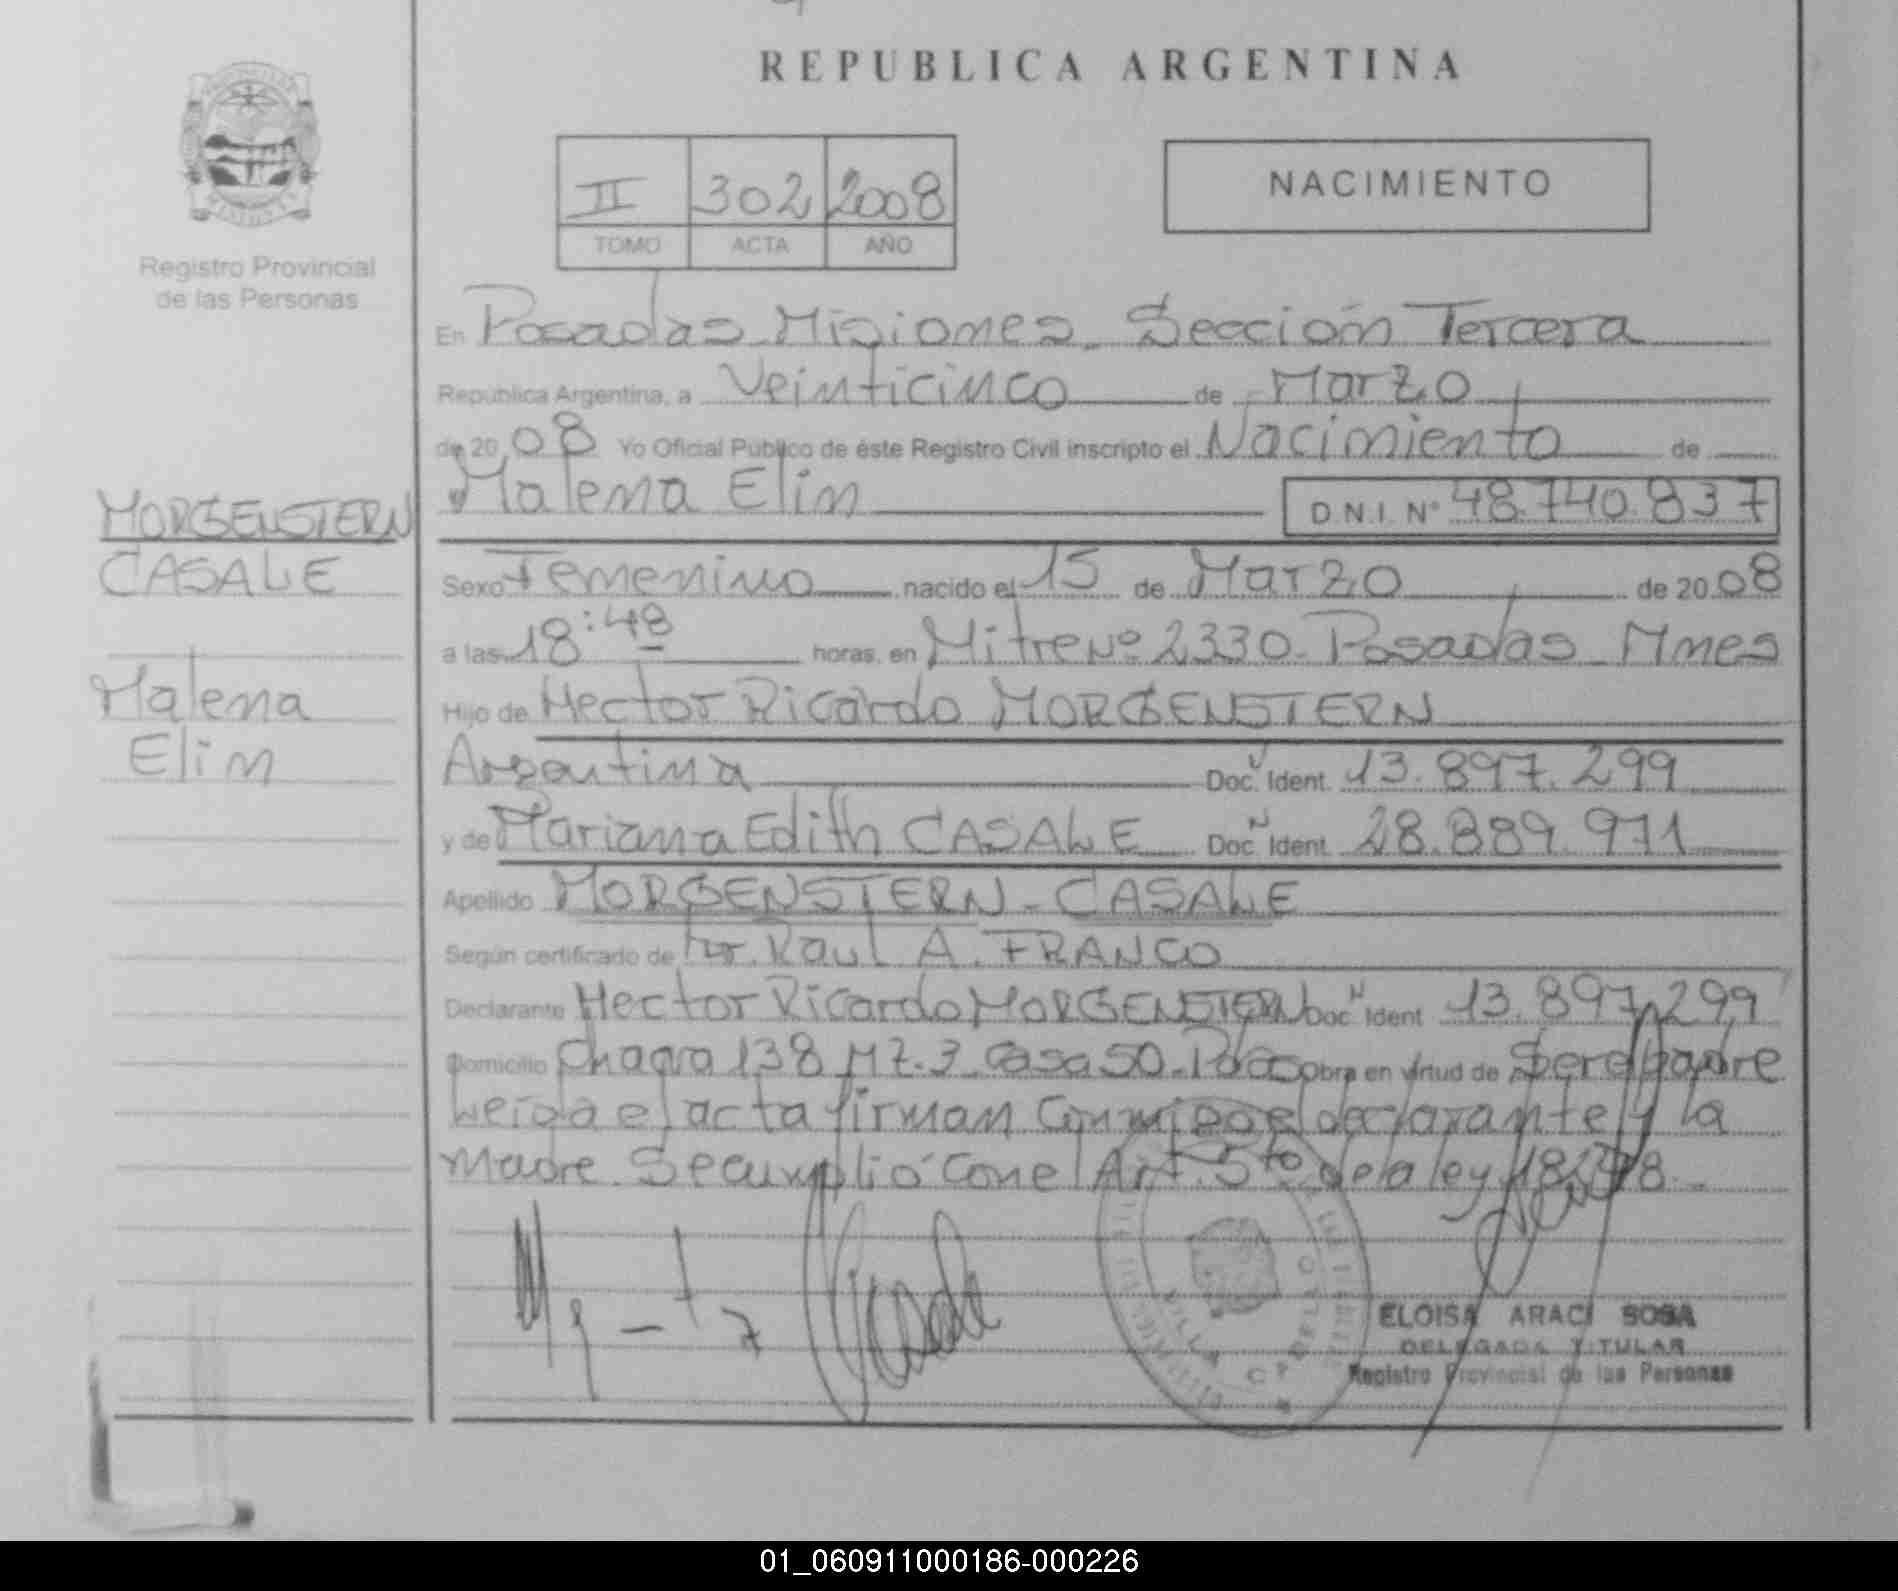 REPUBLICA ARGENTINA
II 302 2008
TOMO ACTA AÑO
NACIMIENTO
Registro Provincial
de las Personas
MORGENSTERN
CASALE
Malena
Elim
En Posadas Misiones. Sección Tercera
República Argentina, a Veinticinco de Marzo
de 20 08 Yo Oficial Público de éste Registro Civil inscripto el Nacimiento de
Malena Elim D.N.I. Nº 48.740.837
Sexo Femenino nacido el 15 de Marzo de 20 08
a las 18:48 horas, en Mitre Nº 2330. Posadas Mnes
Hijo de Hector Ricardo MORGENSTERN
Argentina Doc. Ident. 13.897.299
y de Mariana Edith CASALE Doc. Ident. 28.889.971
Apellido MORGENSTERN - CASALE
Según certificado de Dr. Raul A. FRANCO
Declarante Hector Ricardo MORGENSTERN Doc. Ident. 13.897.299
Domicilio Chacra 138 Mz. 3 Casa 50. Pdas obra en virtud de Ser el padre
Leída el acta firman Conmigo el declarante y la
madre. Se cumplió con el Art. 5to de la ley
VILLA CABELLO
ELOISA ARACI SOSA
DELEGADA TITULAR
Registro Provincial de las Personas
01_060911000186-000226